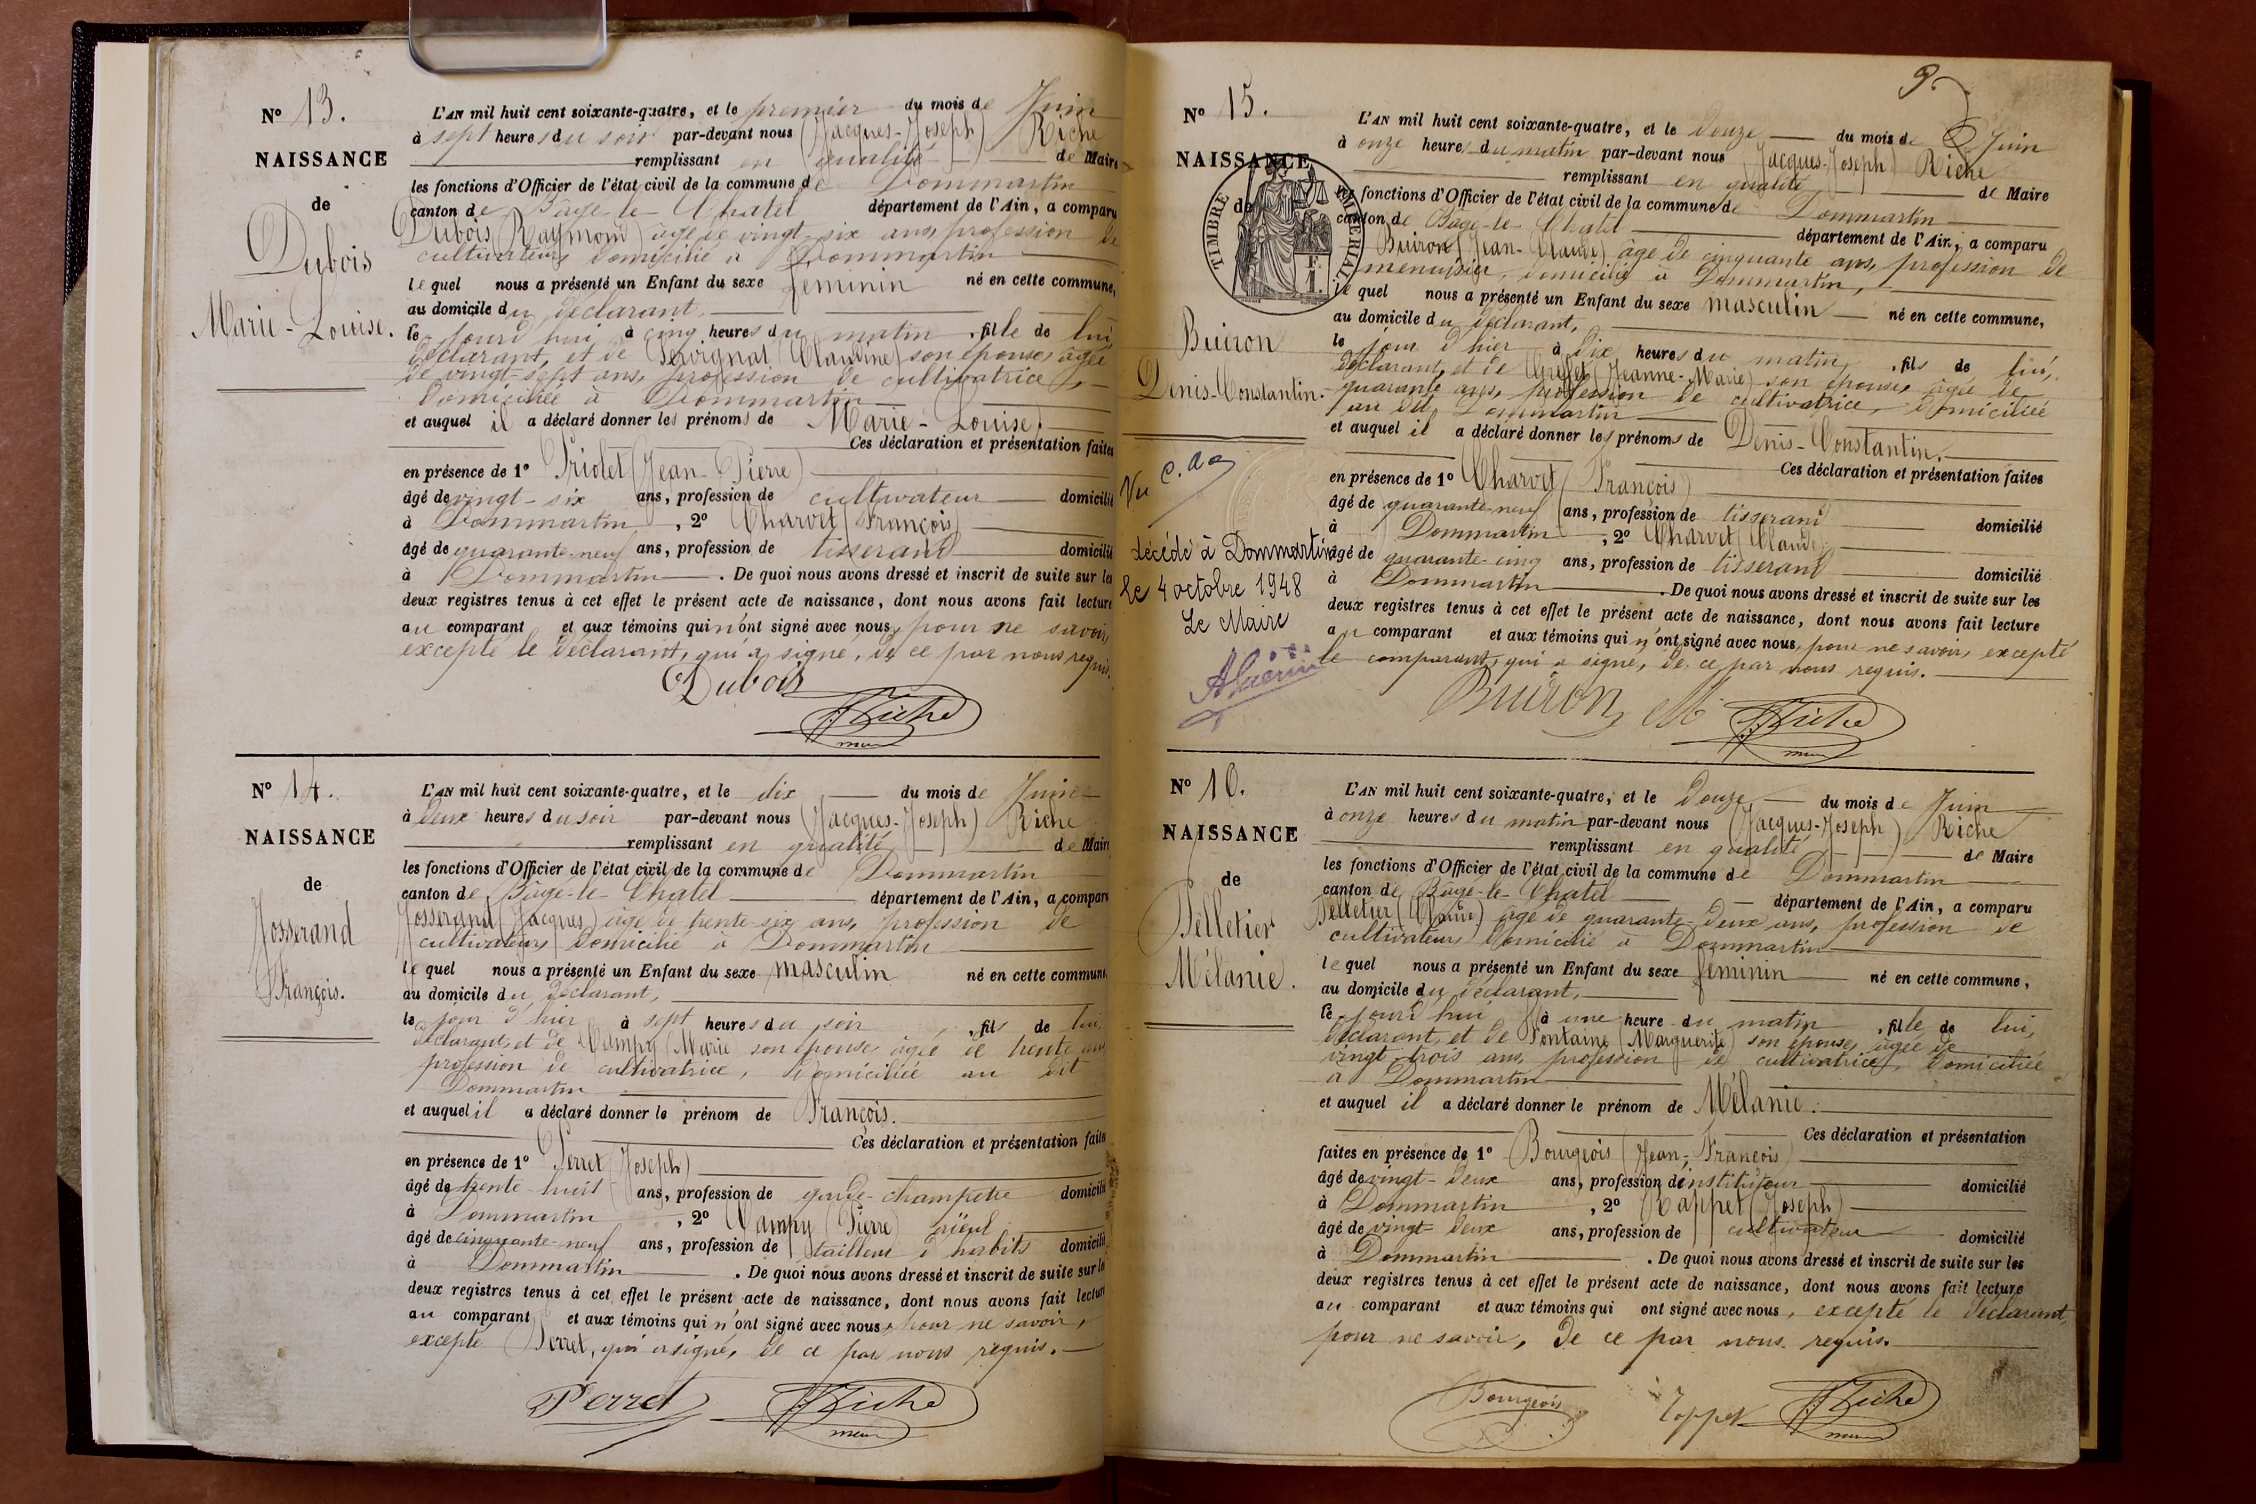 Nº 13.
NAISSANCE
de
Dubois
Marie-Louise.
L'AN mil huit cent soixante-quatre, et le premier du mois de Juin
à sept heures du soir par-devant nous (Jacques-Joseph) Riche
remplissant en qualité de Maire
les fonctions d'Officier de l'état civil de la commune de Dommartin
canton de Bâgé-le-Chatel département de l'Ain, a comparu
Dubois (Raymond) âgé de vingt-six ans, profession de
cultivateur, domicilié à Dommartin
lequel nous a présenté un Enfant du sexe féminin né en cette commune,
au domicile du déclarant,
le jourd'hui à cinq heures du matin, fille de lui
déclarant, et de Servignat (Claudine) son épouse, âgée
de vingt-sept ans, profession de cultivatrice,
domiciliée à Dommartin
et auquel il a déclaré donner les prénoms de Marie-Louise.
Ces déclaration et présentation faites
en présence de 1º Triolet (Jean-Pierre)
âgé de vingt-six ans, profession de cultivateur domicilié
à Dommartin, 2º Charvet (François)
âgé de quarante-neuf ans, profession de tisserand domicilié
à Dommartin. De quoi nous avons dressé et inscrit de suite sur les
deux registres tenus à cet effet le présent acte de naissance, dont nous avons fait lecture
au comparant et aux témoins qui n'ont signé avec nous, pour ne savoir,
excepté le déclarant, qui a signé, de ce par nous requis.
Dubois
J.J. Riche
maire
Nº 14.
NAISSANCE
de
Josserand
François.
L'AN mil huit cent soixante-quatre, et le dix du mois de Juin
à deux heures du soir par-devant nous (Jacques-Joseph) Riche
remplissant en qualité de Maire
les fonctions d'Officier de l'état civil de la commune de Dommartin
canton de Bâgé-le-Chatel département de l'Ain, a comparu
Josserand (Jacques) âgé de trente-six ans, profession de
cultivateur, domicilié à Dommartin
lequel nous a présenté un Enfant du sexe masculin né en cette commune,
au domicile du déclarant,
le jour d'hier à sept heures du soir, fils de lui,
déclarant, et de Campy (Marie) son épouse, âgée de trente ans
profession de cultivatrice, domiciliée au dit
Dommartin
et auquel il a déclaré donner le prénom de François.
Ces déclaration et présentation faites
en présence de 1º Perret (Joseph)
âgé de trente-huit ans, profession de garde-champêtre domicilié
à Dommartin, 2º Campy (Pierre) aïeul
âgé de cinquante-neuf ans, profession de tailleur d'habits domicilié
à Dommartin. De quoi nous avons dressé et inscrit de suite sur les
deux registres tenus à cet effet le présent acte de naissance, dont nous avons fait lecture
au comparant et aux témoins qui n'ont signé avec nous, pour ne savoir,
excepté Perret, qui a signé, de ce par nous requis.
Perret
J.J. Riche
maire
9.
Nº 15.
NAISSANCE
de
TIMBRE IMPÉRIAL
1 F.
Buiron
Denis-Constantin.
Vu
décédé à Dommartin
le 4 octobre 1948
Le Maire
L'AN mil huit cent soixante-quatre, et le douze du mois de Juin
à onze heures du matin par-devant nous Jacques-Joseph) Riche
remplissant en qualité de Maire
les fonctions d'Officier de l'état civil de la commune de Dommartin
canton de Bâgé-le-Chatel département de l'Ain, a comparu
Buiron (Jean-Claude) âgé de cinquante ans, profession de
menuisier, domicilié à Dommartin,
lequel nous a présenté un Enfant du sexe masculin né en cette commune,
au domicile du déclarant,
le jour d'hier à dix heures du matin, fils de lui,
déclarant, et de (Jeanne-Marie) son épouse, âgée de
quarante ans, profession de cultivatrice, domiciliée
au dit Dommartin
et auquel il a déclaré donner les prénoms de Denis-Constantin.
Ces déclaration et présentation faites
en présence de 1º Charvet (François)
âgé de quarante-neuf ans, profession de tisserand domicilié
à Dommartin, 2º Charvet (Claude)
âgé de quarante-cinq ans, profession de tisserand domicilié
à Dommartin. De quoi nous avons dressé et inscrit de suite sur les
deux registres tenus à cet effet le présent acte de naissance, dont nous avons fait lecture
au comparant et aux témoins qui n'ont signé avec nous, pour ne savoir, excepté
le comparant, qui a signé, de ce par nous requis.
Buiron
J.J. Riche
maire
Nº 16.
NAISSANCE
de
Pelletier
Mélanie.
L'AN mil huit cent soixante-quatre, et le douze du mois de Juin
à onze heures du matin par-devant nous (Jacques-Joseph) Riche
remplissant en qualité de Maire
les fonctions d'Officier de l'état civil de la commune de Dommartin
canton de Bâgé-le-Chatel département de l'Ain, a comparu
Pelletier (Claude) âgé de quarante-deux ans, profession de
cultivateur, domicilié à Dommartin
lequel nous a présenté un Enfant du sexe féminin né en cette commune,
au domicile du déclarant,
le jourd'hui à une heure du matin, fille de lui,
déclarant, et de Fontaine (Marguerite) son épouse, âgée de
vingt-trois ans, profession de cultivatrice, domiciliée
à Dommartin
et auquel il a déclaré donner le prénom de Mélanie.
Ces déclaration et présentation
faites en présence de 1º Bourgeois (Jean-François)
âgé de vingt-deux ans, profession d'instituteur domicilié
à Dommartin, 2º Rappet (Joseph)
âgé de vingt-deux ans, profession de cultivateur domicilié
à Dommartin. De quoi nous avons dressé et inscrit de suite sur les
deux registres tenus à cet effet le présent acte de naissance, dont nous avons fait lecture
au comparant et aux témoins qui ont signé avec nous, excepté le déclarant
pour ne savoir, de ce par nous requis.
Bourgeois
Rappet
J.J. Riche
maire